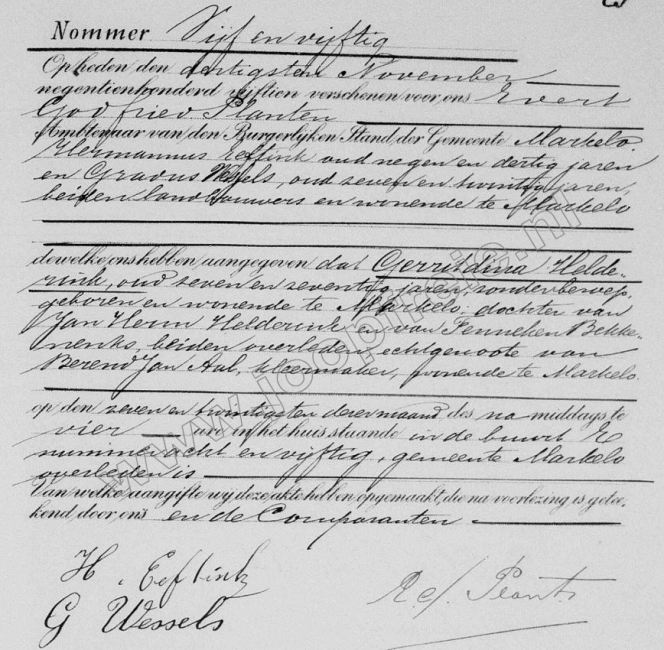 Nommer Vijf en vijftig
Op heden den dertigsten November
negentienhonderd vijftien verschenen voor ons Evert
Godfried Planten
Ambtenaar van den Burgerlijken Stand, der Gemeente Markelo
Hermannus Eeftink oud negen en dertig jaren
en Gradus Wessels, oud zeven en twintig jaren,
beiden landbouwers en wonende te Markelo
dewelke ons hebben aangegeven dat Gerritdina Helde-
rink, oud zeven en zeventig jaren, zonder beroep,
geboren en wonende te Markelo, dochter van
Jan Herm Helderink en van Jenneken Bekke-
nenks, beiden overleden, echtgenoote van
Berend Jan Aal, kleermaker, wonende te Markelo
op den zeven en twintigsten dezer maand des na middags te
vier ure in het huis staande in de buurt E
nummer acht en vijftig, gemeente Markelo
overleden is
Van welke aangifte wij deze akte hebben opgemaakt, die na voorlezing is getee-
kend, door ons en de Comparanten.
H. Eeftink
G Wessels
www.joopmsic.nl